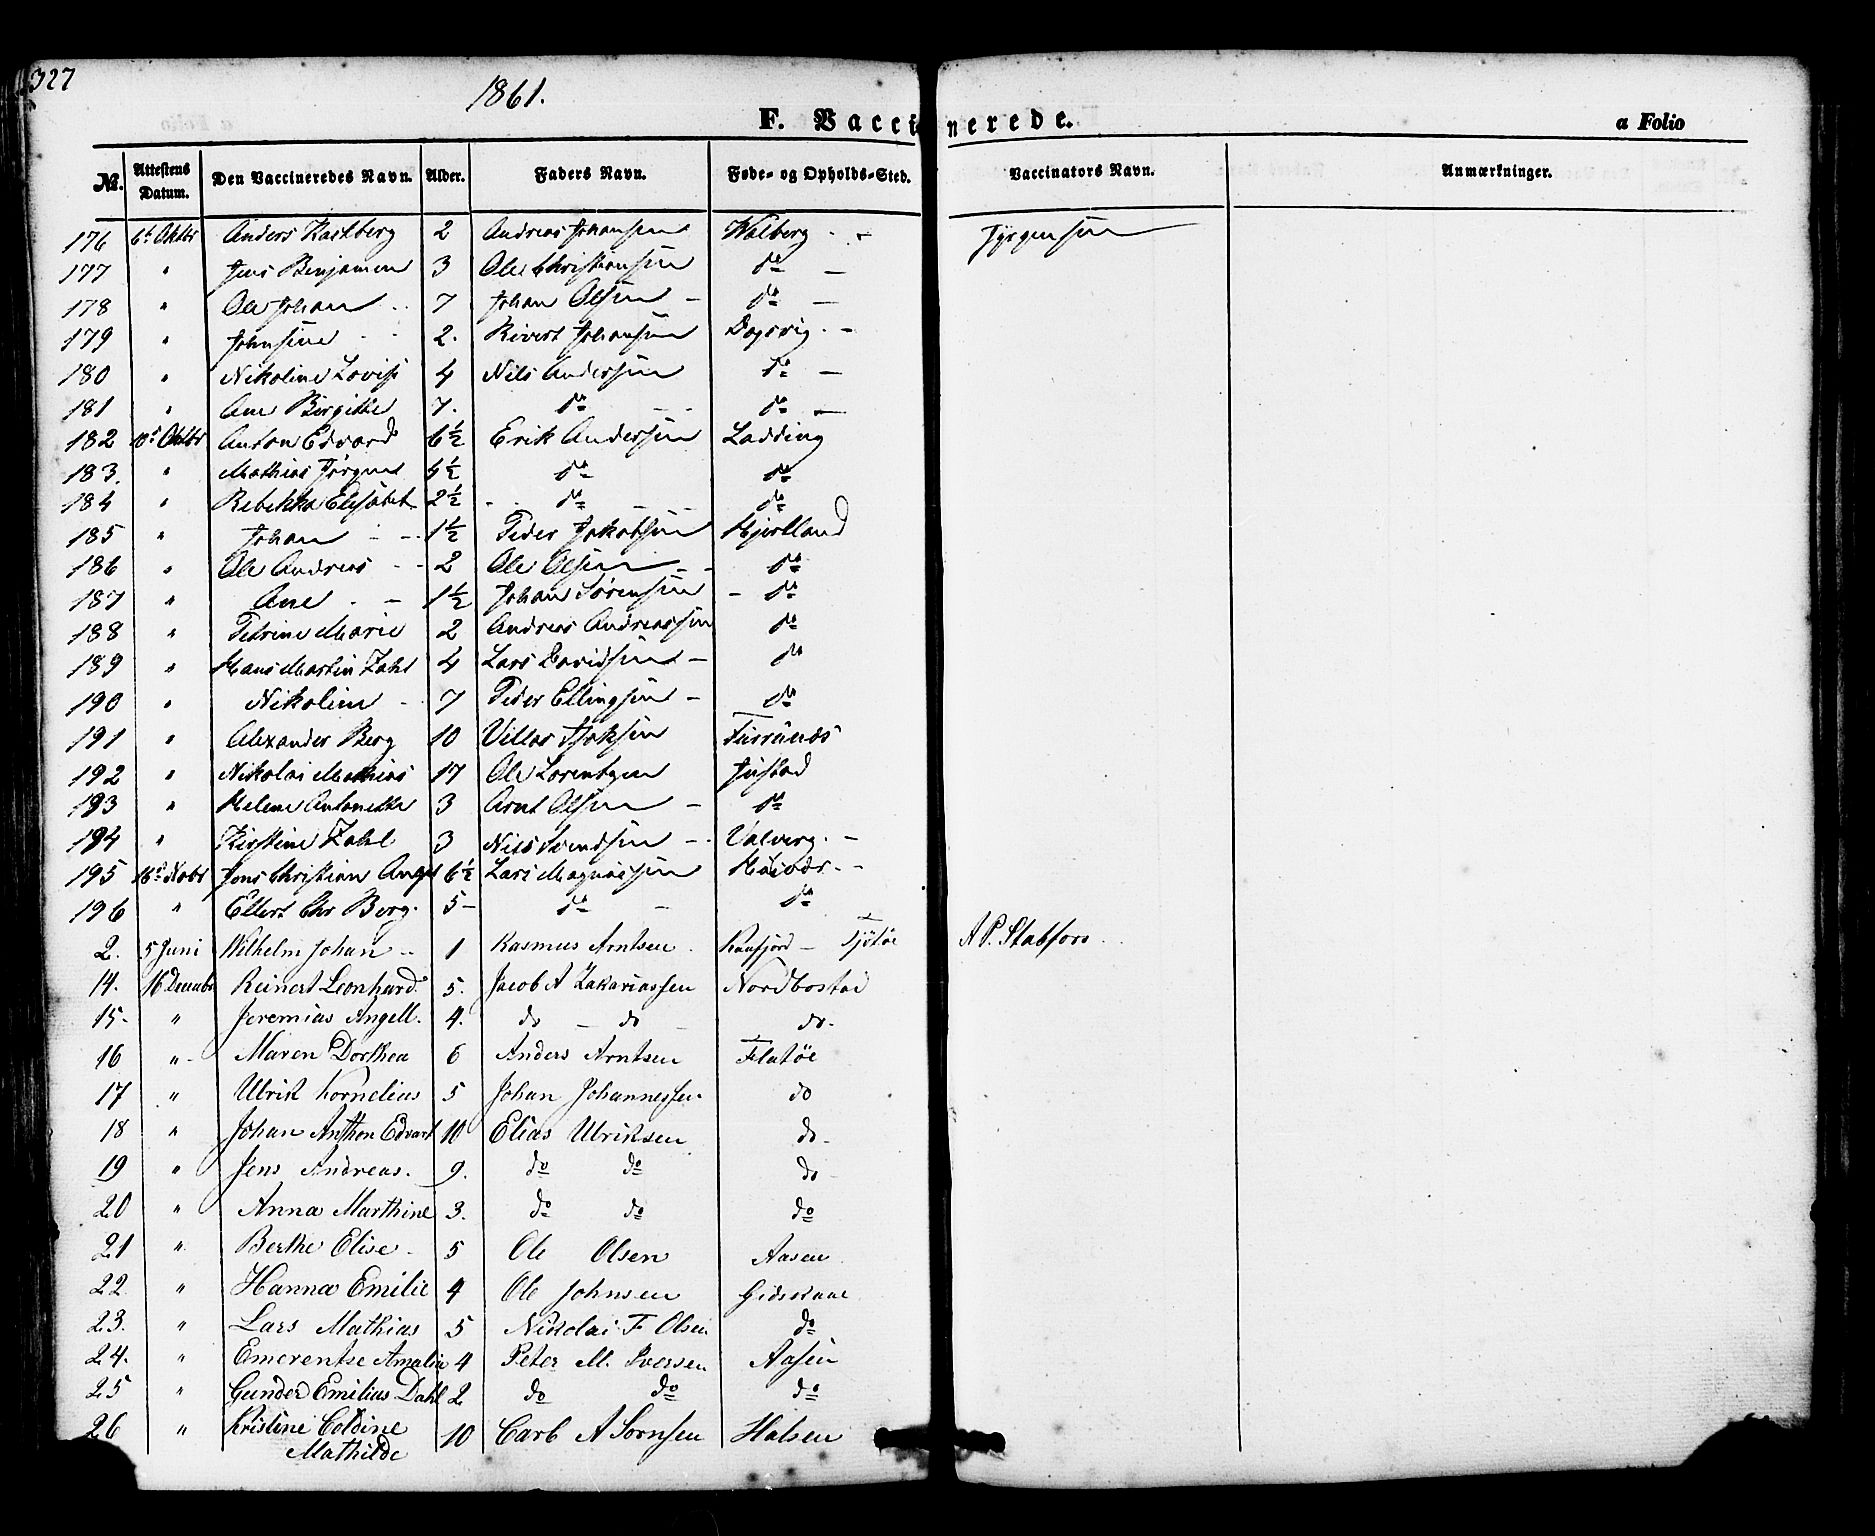 327
1861.
F. Vaccinerede.
a Folio
No. Attestens Datum. Den Vaccineredes Navn. Alder. Faders Navn. Føde- og Opholds-Sted. Vaccinators Navn. Anmærkninger.
176 6t Oktbr Anders Kastberg 2 Andreas Johansen Valberg - -
177 " Jens Benjamin 3 Ole Christiansen do -
178 " Ole Johan 7 Johan Olsen - do -
179 " Johnsine - 2. Sivert Johansen -
180 " Nikoline Lovise 4 Nils Andersen do -
181 " Ane Birgitte 7. do - do -
182 10d Oktbr Anton Edvard 6½ Erik Andersen Ladding
183. " Mathias Jørgen 4½ do do
184 " Rebekka Elisabet 2½ - do - do
185 " Johan - 1½ Peder Jakobsen
186 " Ole Andreas - 2 Ole Olsen - do
187 " Ane - 1½ Johan Sørensen - do
188 " Petrine Marie 2 Andreas Andreassen do
189 " Hans Martin Zahl 4 Lars Davidsen - do
190 " Nikoline - 7 Peder Ellingsen - do
191 " Alexander Berg 10
192 " Nikolai Mathias 17 Ole Lorentzen Justad
193 " Helene Antonette 3 Arnt Olsen - do
194 " Kirstine Zahl 3 Nils Svendsen - Valberg. -
195 16d Novbr Jens Christian Angel 6½ Lars Magnussen
196 " Ellert Chr Berg. 5- do - do
2. 5 Juni Wilhelm Johan - 1 Rasmus Arntsen - Tjötöe A P. Stabfors
14. 16 Decembr Reinert Leonhard. 5. Jacob A Zakariassen Nordbostad
15- " Jeremias Angell. 4. do - do - do-
16 " Maren Dorthea 6 Anders Arntsen Flatöe
17 " Ulrik Kornelius 5 Johan Johannessen. do
18 " Johan Anthon Edvart 10 Elias Ulriksen do-
19 " Jens Andreas. 9. do do do
20 " Anna Marthine 3. do do do
21 " Berthe Elise - 5 Ole Olsen Aasen
22 " Hanna Emilie 4 Ole Johnsen
23. " Lars Mathias 5 Nikolai F Olsen do
24. " Emerentse Amalia 4 Peter M. Iversen Aasen
25 " Gunder Emilius Dahl 2 do do do
26 " Kristine Coldine 10 Carl A Sørnsen Halsen
Mathilde